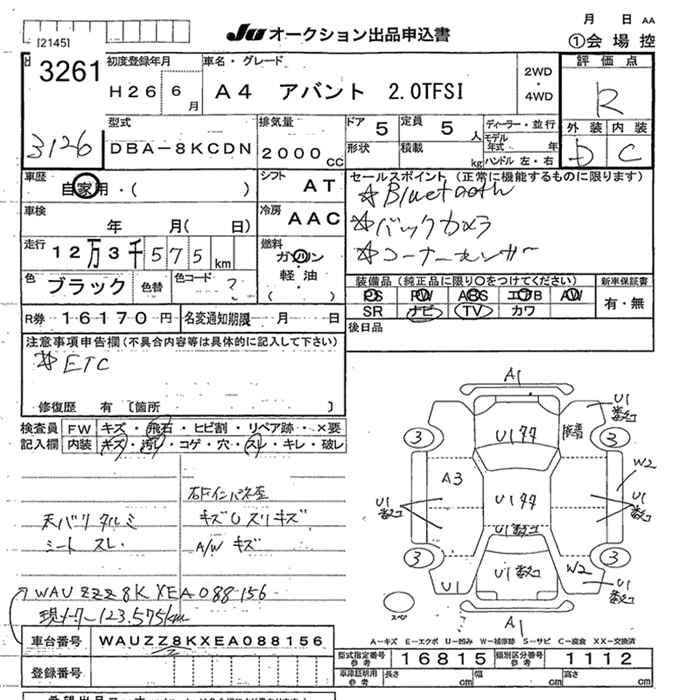 月 日 AA
[2145]
JU オークション出品申込書
①会場控
3261
3126
初度登録年月
H26 6月
車名・グレード
A4 アバント 2.0TFSI
2WD
・
4WD
評価点
R
外装 内装
D C
型式
DBA-8KCDN
排気量
2000cc
ドア 5
定員 5人
形状
積載 kg
ディーラー・並行
モデル年式 年
ハンドル 左・右
車歴
自家用・( )
シフト AT
車検
年 月( 日)
冷房 AAC
走行
12万3千575km
燃料
ガソリン
軽油
( )
色 ブラック
色替
色コード ?
R券 16170円
名変通知期限 月 日
セールスポイント(正常に機能するものに限ります)
☆Bluetooth
☆バックカメラ
☆コーナーセンサー
装備品(純正品に限り○をつけてください)
PS PW ABS エアB AW
SR ナビ TV カワ
新車保証書
有・無
後日品
注意事項申告欄(不具合内容等は具体的に記入して下さい)
☆ETC
修復歴 有 〔箇所 〕
検査員記入欄
FW キズ・飛石・ヒビ割・リペア跡・×要
内装 キズ・汚れ・コゲ・穴・スレ・キレ・破レ
天バリ タルミ
シート スレ
右Fインパネ歪
キズUスリキズ
A/W キズ
WAUZZZ8KXEA088156
現メーター123.575km
車台番号 WAUZZ8KXEA088156
登録番号
A1
U1
3
3
A3
W2
U1
U1
3
3
U1
W2
U1
スペア
A1
A-キズ E-エクボ U-凹み W-補修跡 S-サビ C-腐食 XX-交換済
型式指定番号 参考 16815
類別区分番号 参考 1112
車庫証明用 参考 長さ cm 幅 cm 高さ cm